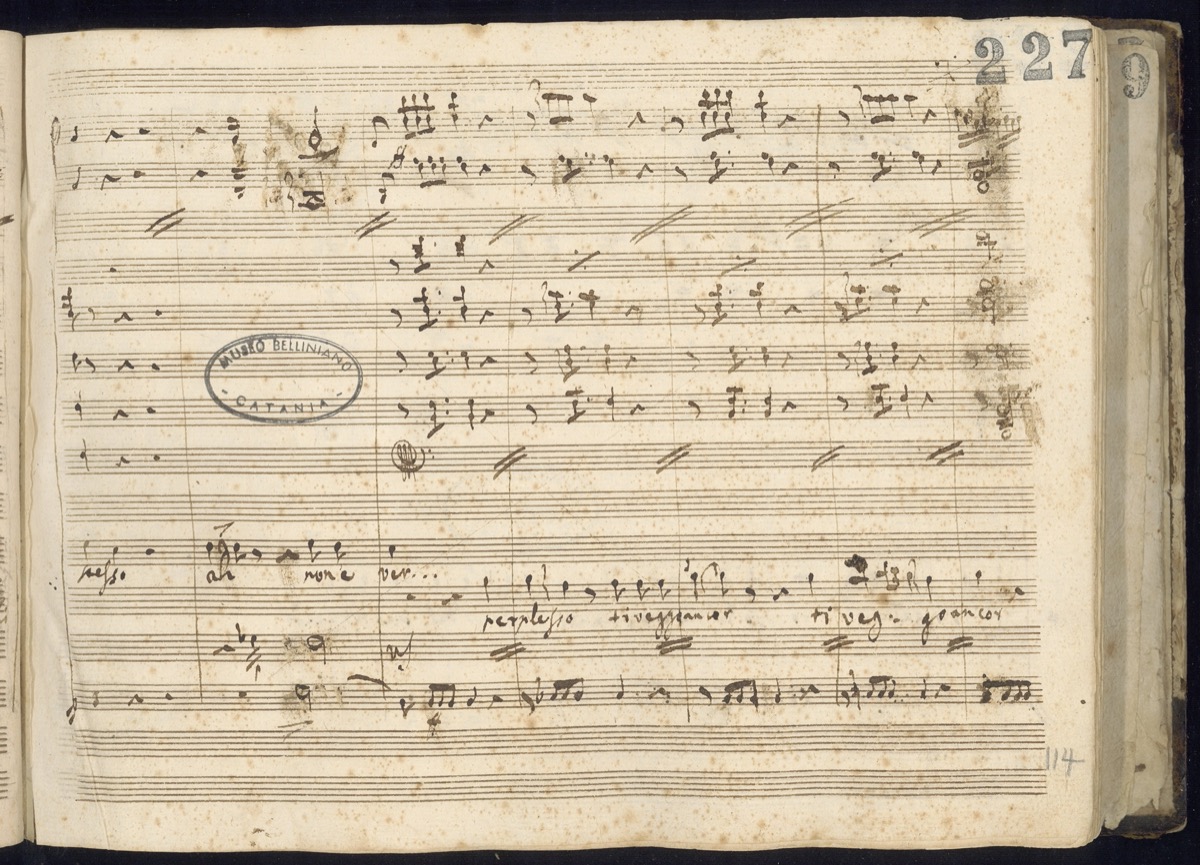 227
9
MUSEO BELLINIANO
- CATANIA -
ah non è ver...
perplesso ti veggo ancor ti veg- go ancor
114